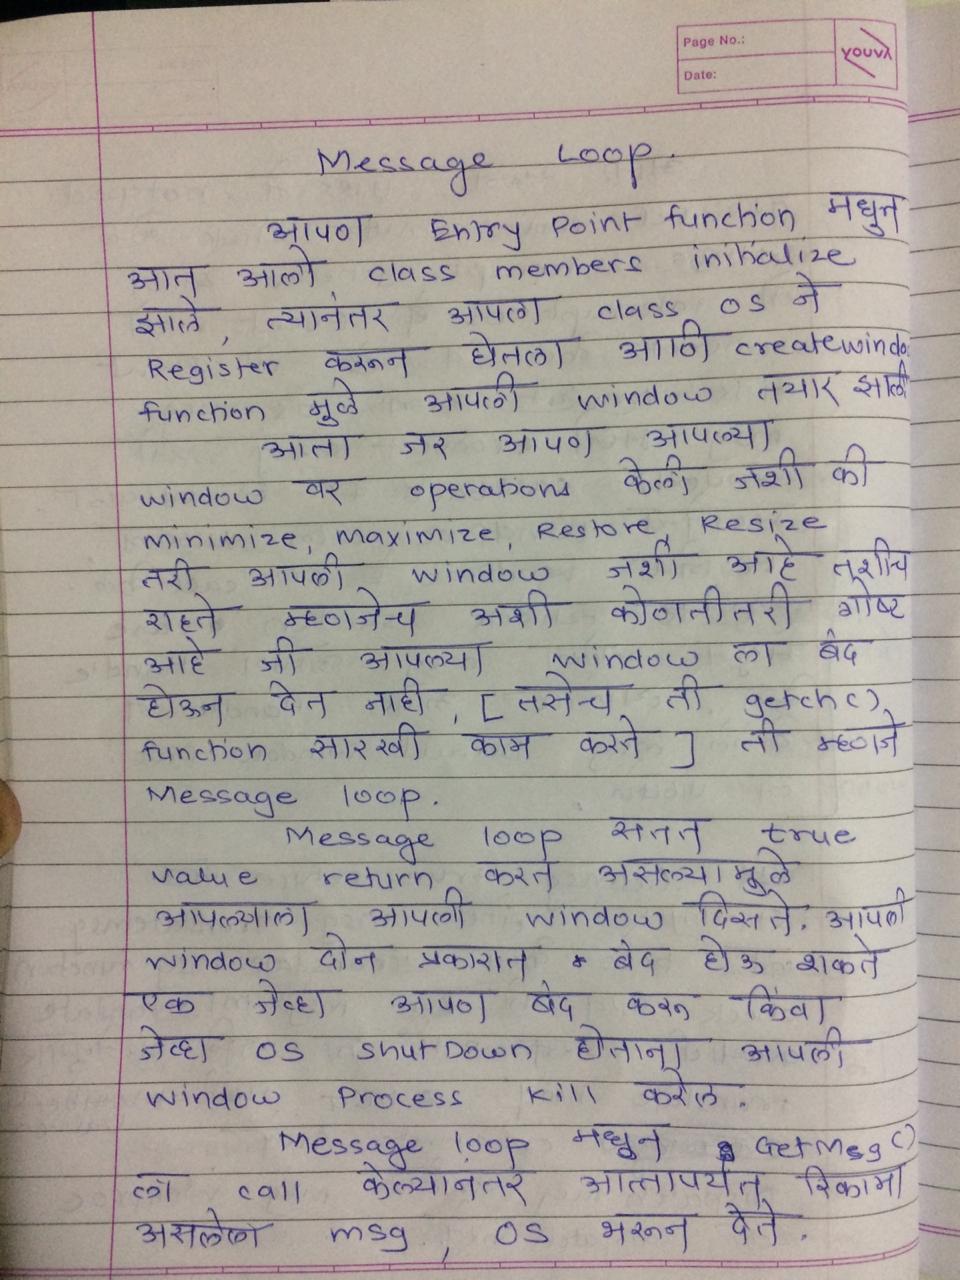 Page No.:
Date:
YOUVA
Message Loop.
आपण Entry Point function मधुन
आत आलो class members initialize
झाले, त्यानंतर आपला class OS ने
Register करून घेतला आणि createwindo
function मुळे आपली window तयार झाली
आता जर आपण आपल्या
window वर operations केली जशी की
minimize, maximize, Restore, Resize
तरी आपली window जशी आहे तशीच
राहते म्हणजेच अशी कोणतीतरी गोष्ट
आहे जी आपल्या window ला बंद
होऊन देत नाही, [तसेच ती getch()
function सारखी काम करते] ती म्हणजे
Message loop.
Message loop सतत true
value return करत असल्यामुळे
आपल्याला आपली window दिसते. आपली
window दोन प्रकारात बंद होऊ शकते
एक जेव्हा आपण बंद करू किंवा
जेव्हा OS shutDown होताना आपली
window Process kill करेल.
Message loop मधुन GetMsg()
ला call केल्यानंतर आत्तापर्यंत रिकामा
असलेला msg, OS भरून देते.